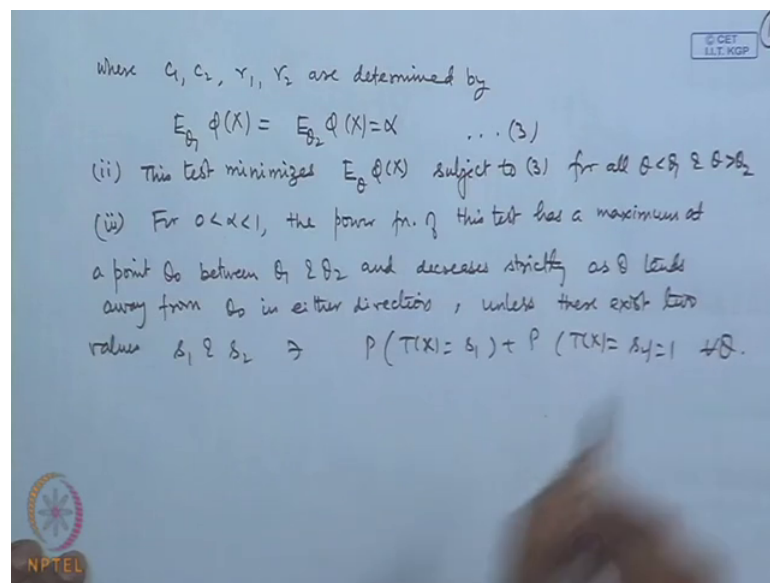 © CET
I.I.T. KGP
where c₁, c₂, r₁, r₂ are determined by
E_θ₁ φ(X) = E_θ₂ φ(X) = α ... (3)
(ii) This test minimizes E_θ φ(X) subject to (3) for all θ<θ₁ & θ>θ₂
(iii) For 0<α<1, the power fn. of this test has a maximum at
a point θ₀ between θ₁ & θ₂ and decreases strictly as θ tends
away from θ₀ in either direction, unless there exist two
values s₁ & s₂ ∋ P(T(X)=s₁) + P(T(X)=s₂)=1 ∀θ.
NPTEL